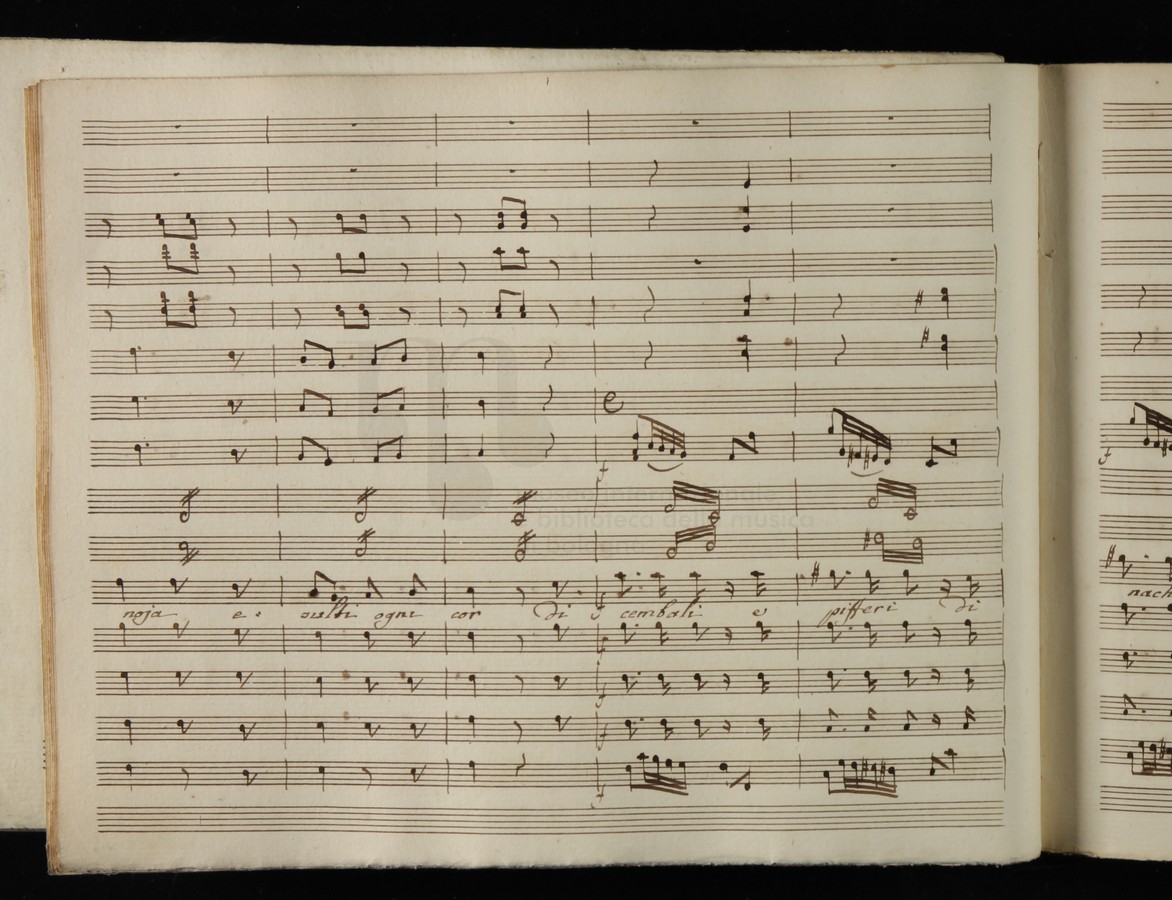 noja e. esulti ogni cor di cembali e pifferi di
nach
f
f
f
f
f
f
f
museo internazionale
biblioteca della musica